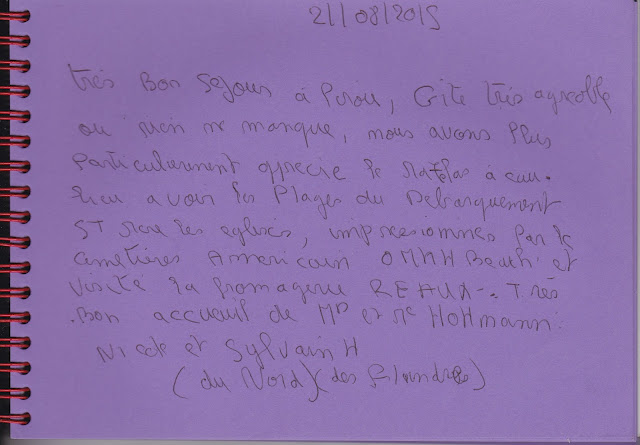 21/08/2015
très Bon Sejour à Pirou, Gite très agreable
ou rien ne manque, nous avons Plus
particulierement apprecié le Matelas à eau.
Lieu a voir les Plages du Debarquement
ST mere les eglises, impressionnés par le
cimetières Americain OMHH Beach et
visité la fromagerie REAUX... Très
Bon accueil de Mr et Me HOHmann.
Nicole et Sylvain H
(du Nord) (des flandres)